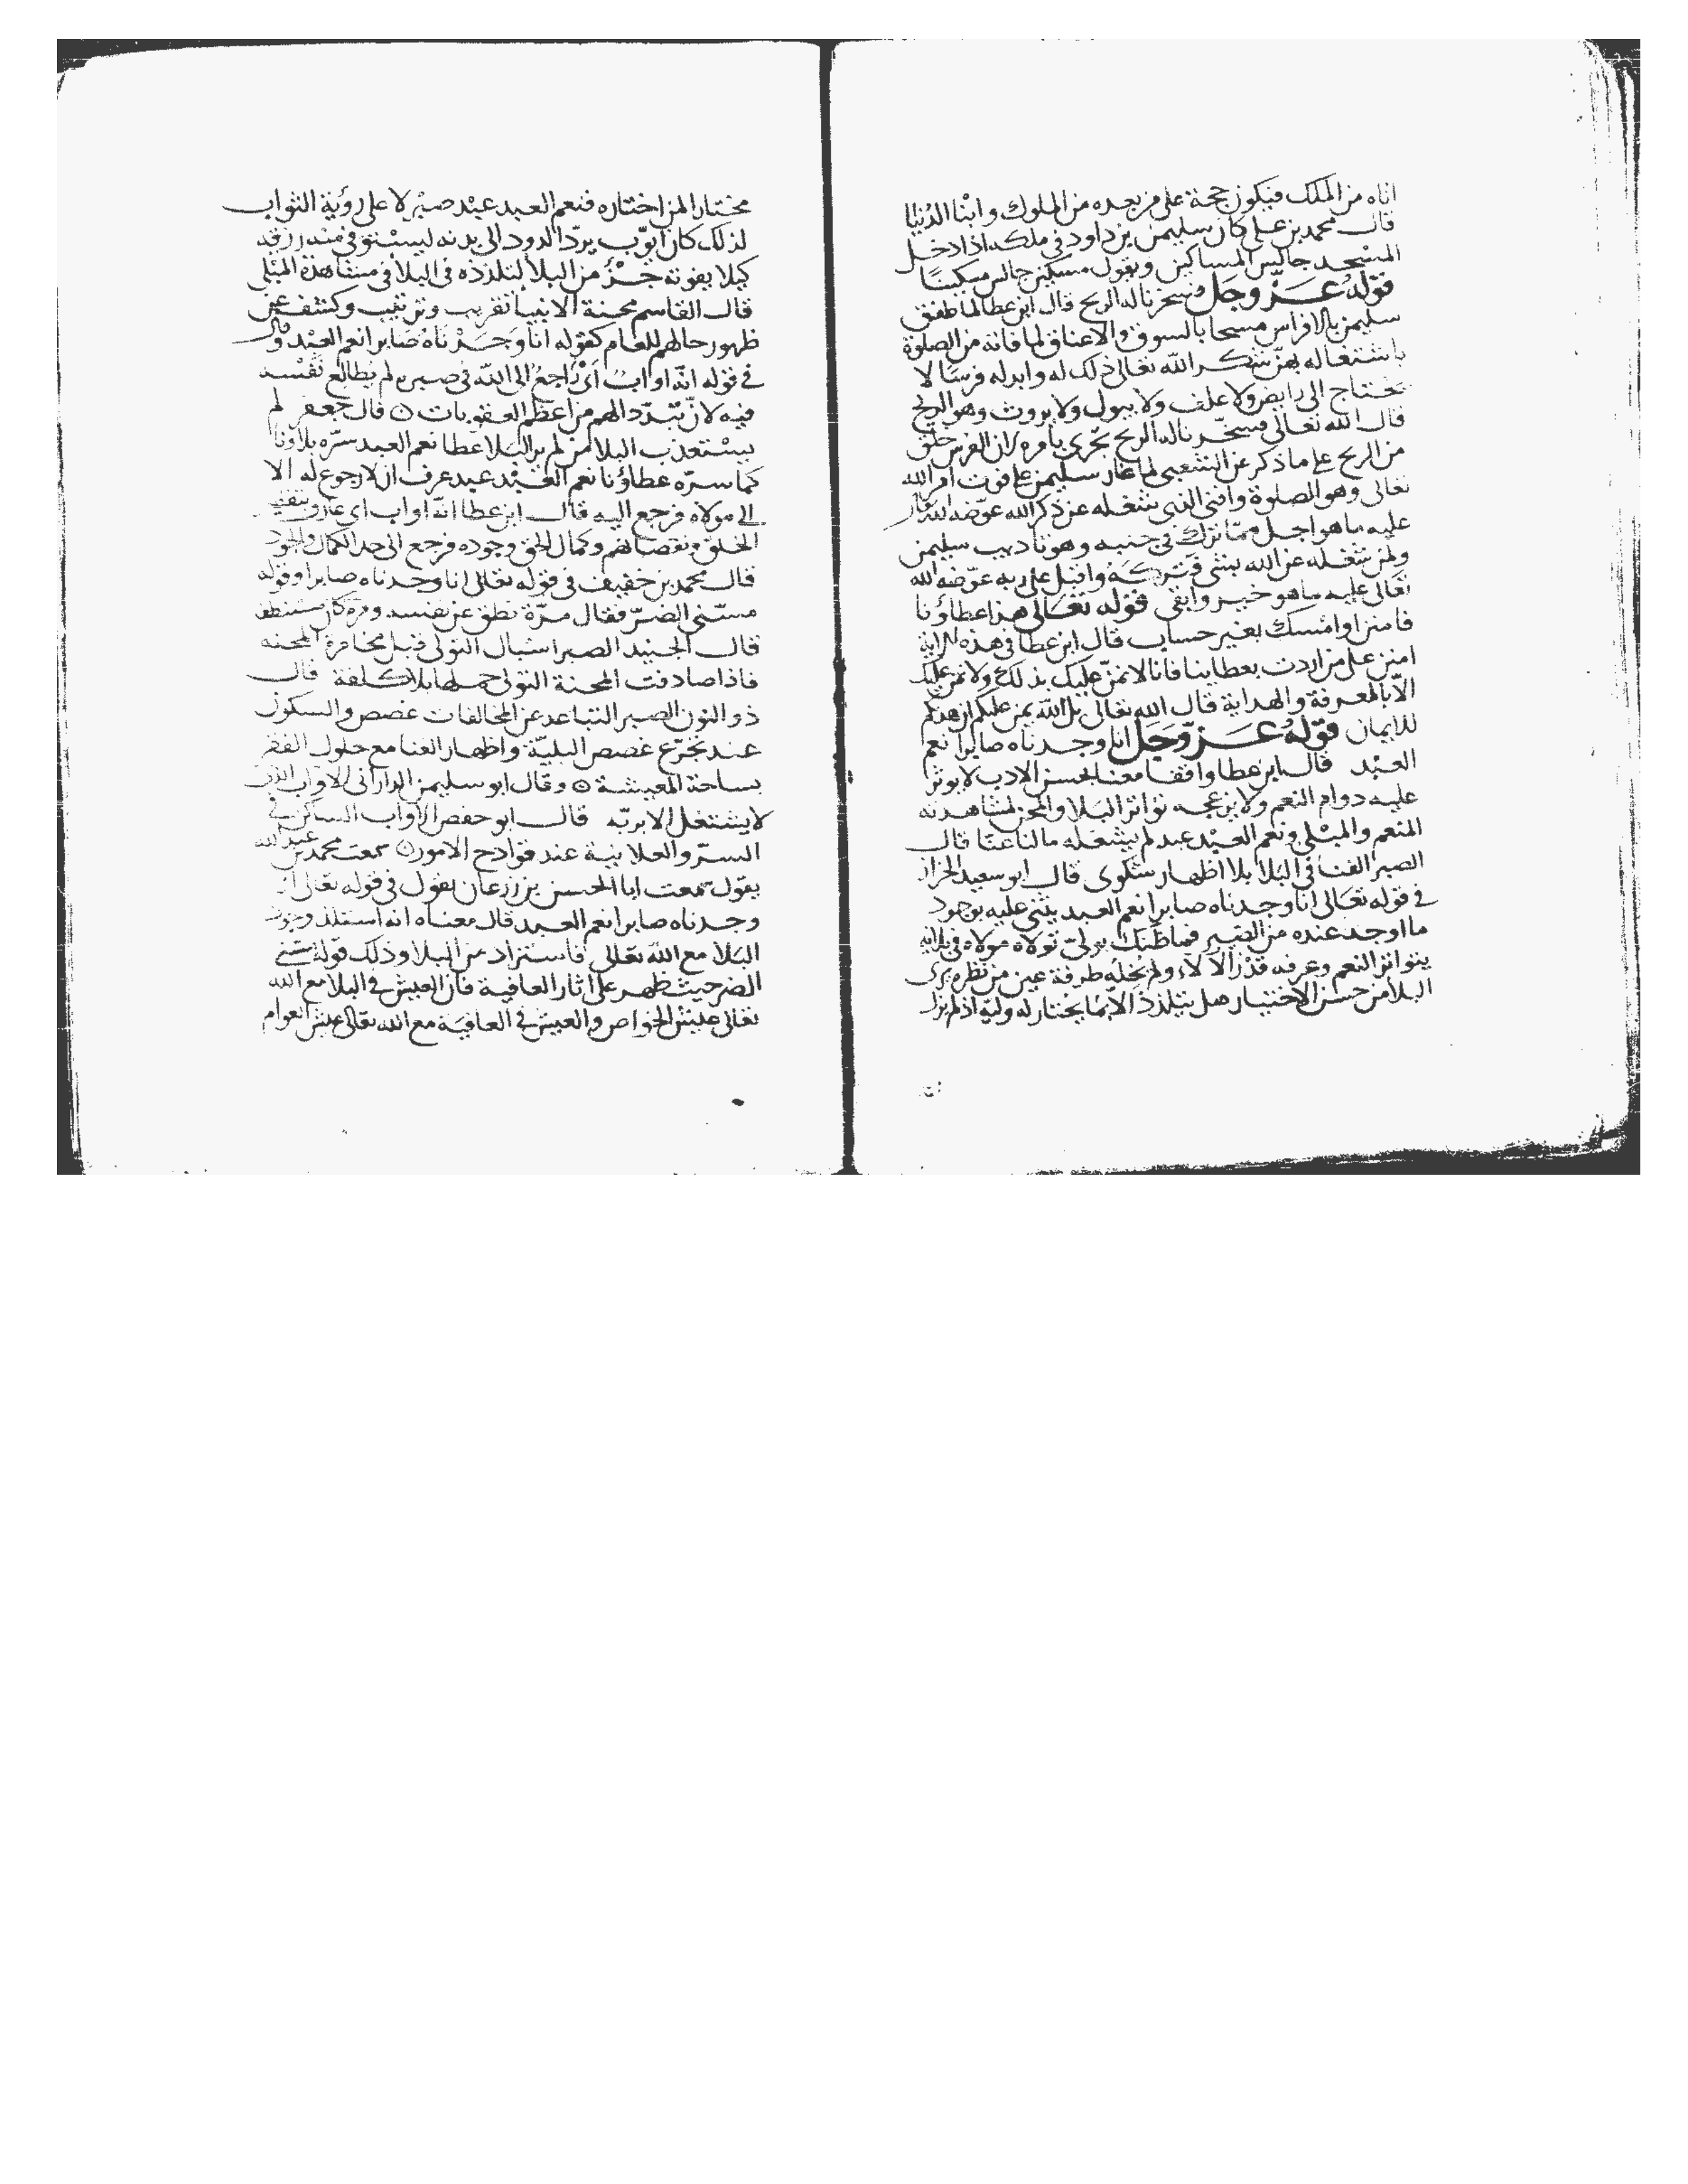 اتاه من الملك فيكون حجة على من بعده من الملوك وابنا الدنيا
قال محمد بن على كان سليمن بن داود فى ملكه اذا دخل
المسجد جالس المساكين ويقول مسكين جالس مسكينا
قوله عز وجل فسخرنا له الريح قال ابن عطا لما طفق
سليمن بالافراس مسحا بالسوق والاعناق لما فاته من الصلوة
باشتغاله بهن شكر الله تعالى ذلك له وابدله فرسا لا
تحتاج الى رايض ولا علف ولا يبول ولا يروث وهو الريح
قال الله تعالى فسخرنا له الريح تجرى بامره لان الفرس خلق
من الريح على ما ذكر عن الشعبى لما غار سليمن على فوت امر الله
تعالى وهو الصلوة وافنى الذى شغله عن ذكر الله عوضه الله
عليه ما هو اجل مما ترك فى جنبه وهو تاديب سليمن
ولمن شغله عن الله بشى فتركه واقبل على ربه عوضه الله
تعالى عليه ما هو خير وابقى قوله تعالى هذا عطاؤنا
فامنن او امسك بغير حساب قال ابن عطا فى هذه الاية
امنن على من اردت بعطاينا فانا لا نمن عليك بذلك ولا نمن عليك
الا بالمعرفة والهداية قال الله تعالى بل الله يمن عليكم ان هديكم
للايمان قوله عز وجل انا وجدناه صابرا نعم
العبد قال ابن عطا واقفا معنا بحسن الادب لا يوثر
عليه دوام النعم ولا يزعجه تواتر البلا والمحن لمشاهدته
المنعم والمبلى ونعم العبد عبد لم يشغله ما لنا عنا قال
الصبر الفنا فى البلا بلا اظهار شكوى قال ابو سعيد الخراز
فى قوله تعالى انا وجدناه صابرا نعم العبد يثنى عليه بوجود
ما اوجد عنده من الصبر فما ظنك بولى تولاه مولاه فى بلايه
بتواتر النعم وعرفه قدر الالاء ولم يخله طرفة عين من نظره يرى
البلا من حسن الاختيار هل يتلذذ الا بما يختار له وليه اذ لم يزل
مختار المن اختاره فنعم العبد عبد صبر لا على رؤية الثواب
لذلك كان ايوب يرد الدود الى بدنه ليستوفى منه رزقه
كيلا يفوته جزؤ من البلا لتلذذه فى البلا فى مشاهدة المبلى
قال القاسم محنة الانبيا تقريب وترتيب وكشف عن
ظهور حالهم للعام كقوله انا وجدناه صابرا نعم العبد وقال
فى قوله انه اواب اى راجع الى الله فى صبره لم يطالع نفسه
فيه لان تبدد الهم من اعظم العقوبات قال جعفر لم
يستعذب البلا من لم ير البلا عطا نعم العبد سره بلاونا
كما سره عطاؤنا نعم العبد عبد عرف ان لا رجوع له الا
الى مولاه فرجع اليه قال ابن عطا انه اواب اى عارف بنقيصة
الخلق ونقصانهم وكمال الحق وجوده فرجع الى حد الكمال والجود
قال محمد بن خفيف فى قوله تعالى انا وجدناه صابرا وقوله
مسنى الضر فقال مرة نطق عن نفسه ومرة كان مستنطقا
قال الجنيد الصبر اسبال التولى قبل مخامرة المحنه
فاذا صادفت المحنة التولى حملها بلا كلفة قال
ذو النون الصبر التباعد عن المخالفات غصص والسكون
عند تجرع غصص البلية واظهار الغنا مع حلول الفقر
بساحة المعيشة وقال ابو سليمن الدارانى الاواب الذى
لا يشتغل الا بربه قال ابو حفص الاواب الساكن فى
السر والعلانية عند فوادح الامور سمعت محمد بن عبد الله
يقول سمعت ابا الحسن بن زرعان يقول فى قوله تعالى انا
وجدناه صابرا نعم العبد قال معناه انه استلذ وجود
البلا مع الله تعالى فاستزاد من البلا وذلك قوله مسنى
الضر حيث ظهر على اثار العافية فان العيش فى البلا مع الله
تعالى عيش الخواص والعيش فى العافية مع الله تعالى عيش العوام